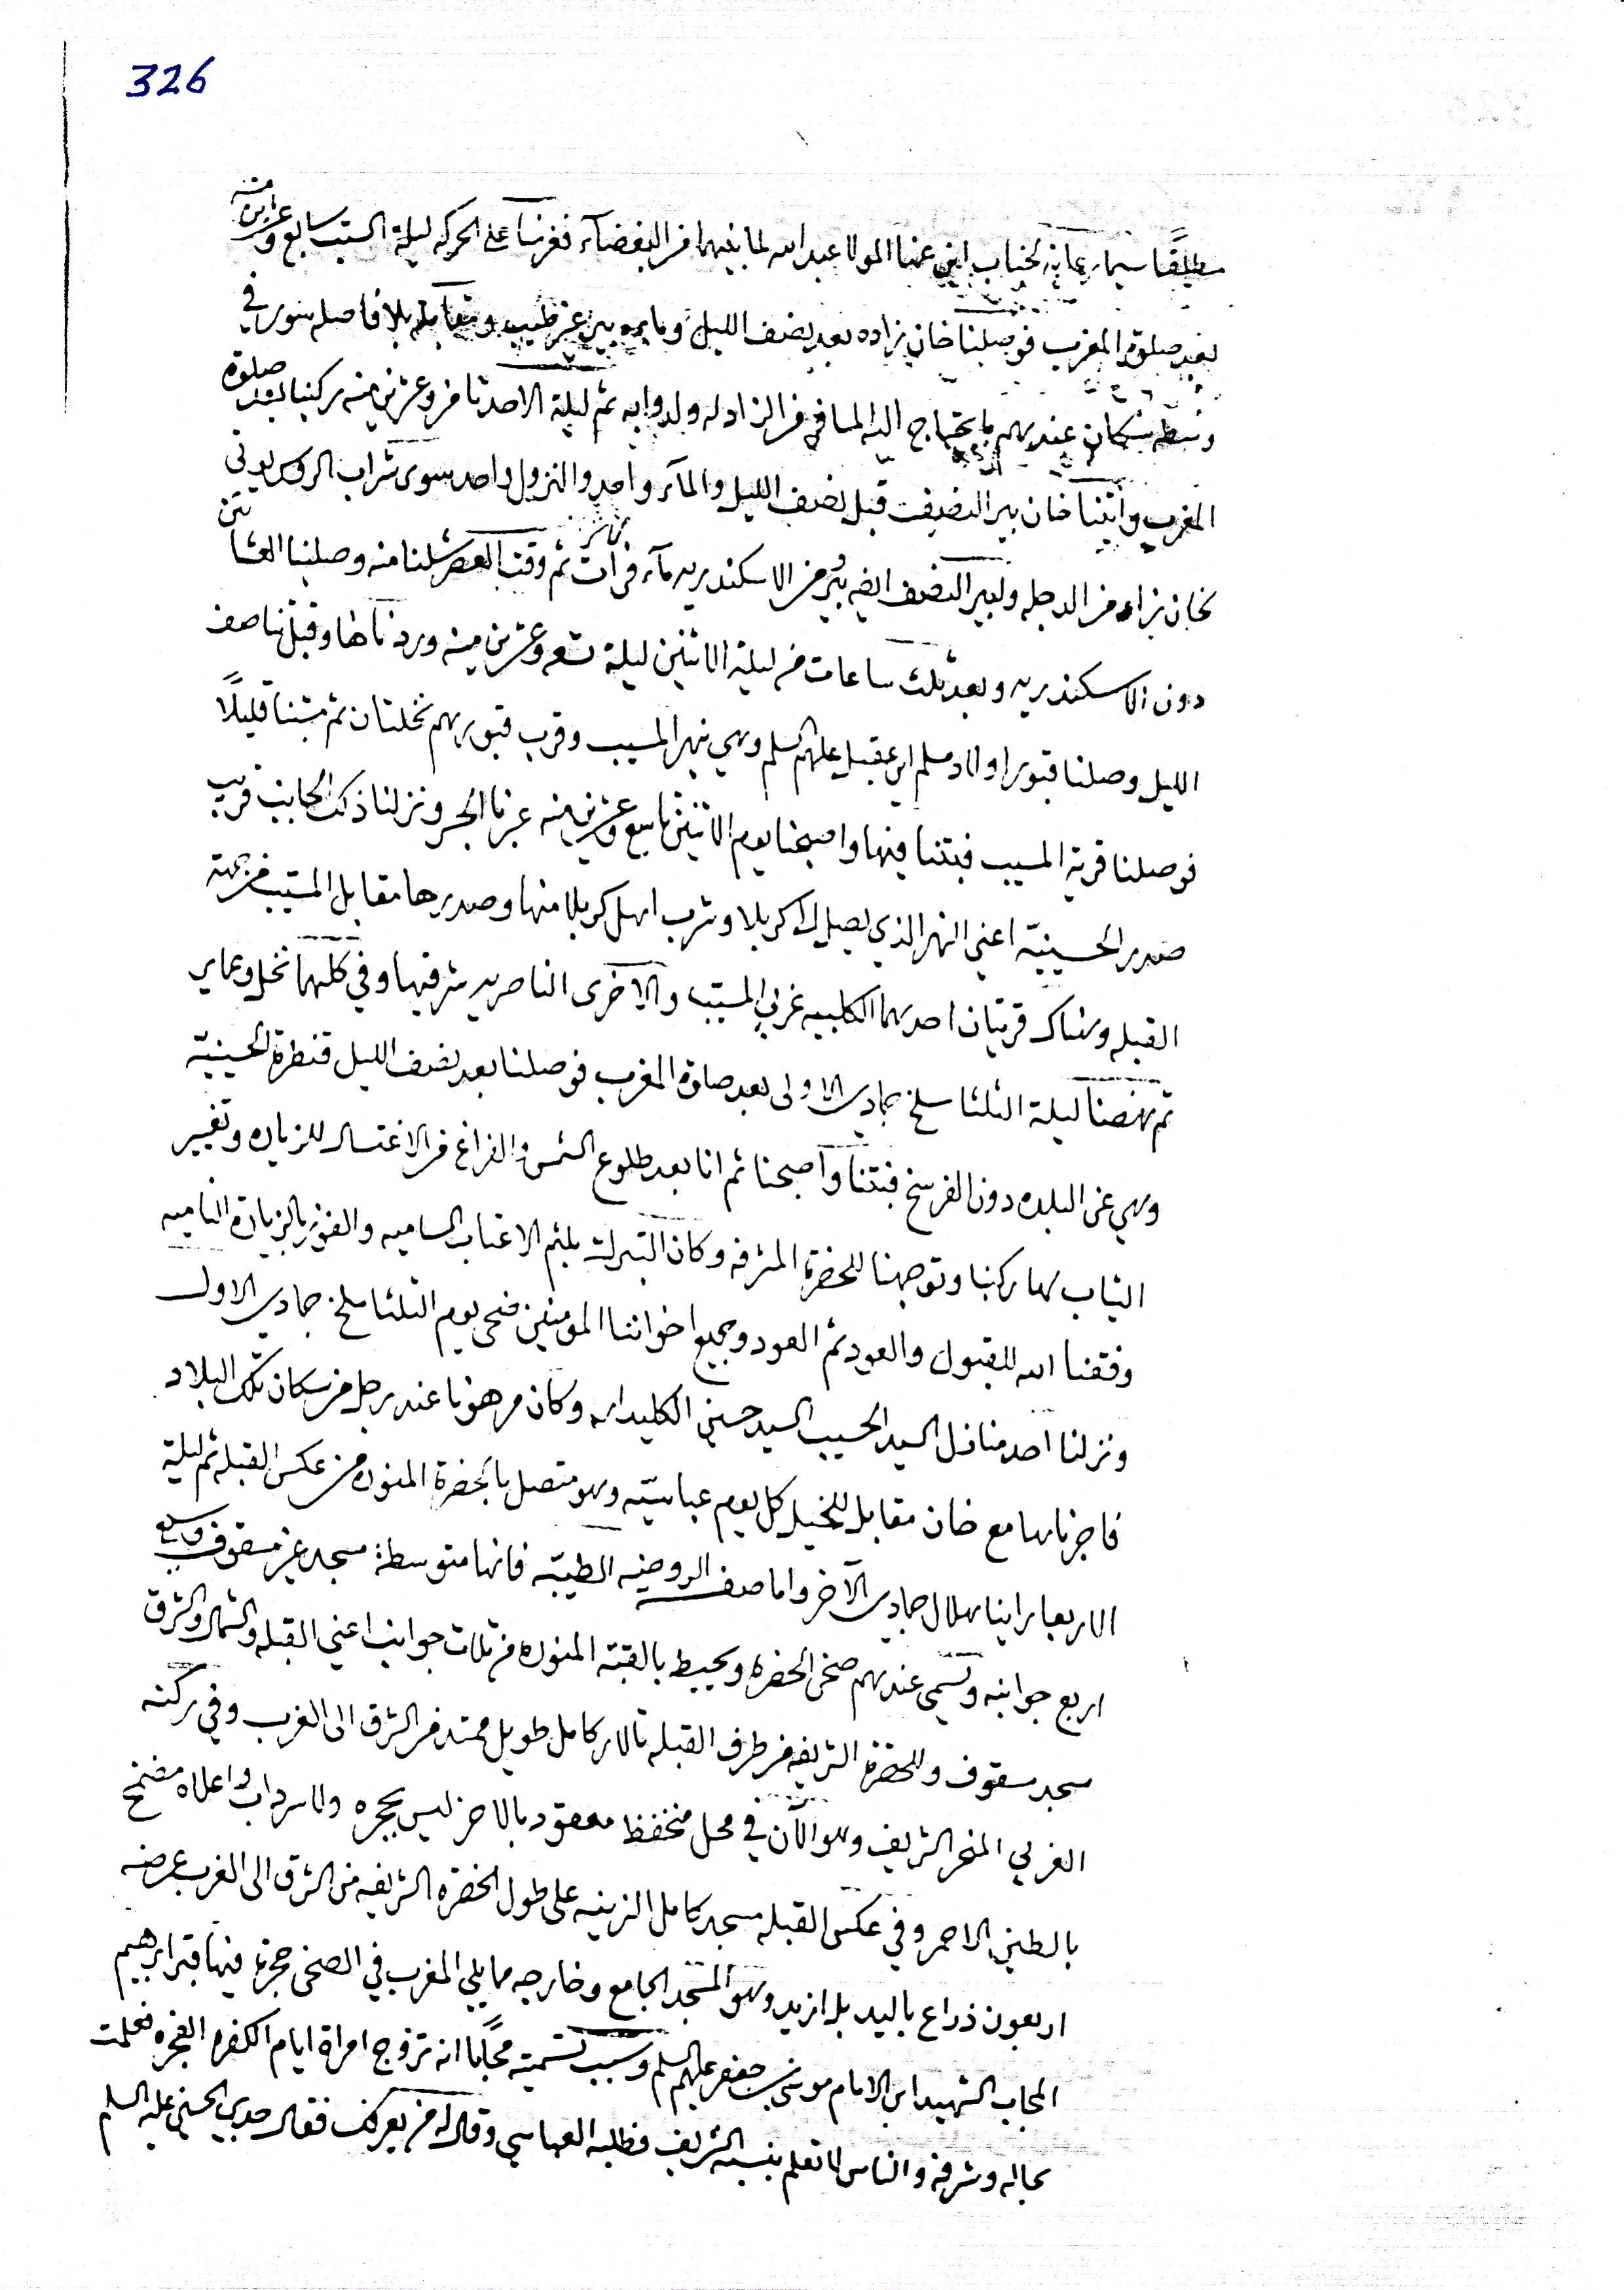 326
مطلقًا سيما رعاية لجناب ابن عمنا المولا عبد الله لما بينهما من البغضآء فعزمنا على الحركه ليلة السبت سابع وعشرين منه
بعد صلوة المغرب فوصلنا خان بزاده بعد نصف الليل وماءه بير غير طيب ومقابله بلا فاصله سور في
وسطه سكان عندهم ما يحتاج اليه المسافر من الزاد له ولدوابه ثم ليلة الاحد ثامن وعشرين منه ركبنا بعد صلوة
المغرب وأتينا خان بير النصيف قبل نصف الليل والمآء واحد والنزول واحد سوى شراب الرؤس يؤتى
لخان بزاد من الدجله ولبير النصف ايضه يؤ من الاسكندريه مآء فرات نهر ثم وقت العصر شلنا منه وصلينا العشائين
دون الاسكندريه وبعد ثلث ساعات من ليلة الاثنين ليلة تسعه وعشرين منه وردناها وقبل تناصف
الليل وصلنا قبور اولاد مسلم ابن عقيل عليهم السلم وهي بنهر المسيب وقرب قبورهم نخلتان ثم مشينا قليلًا
فوصلنا قرية المسيب فبتنا فيها واصبحنا يوم الاثنين تاسع وعشرين منه عبرنا الجسر ونزلنا ذلك الجانب قريب
صدر الحسينيّه اعني النهر الذي يصل الى كربلا وشرب اهل كربلا منها وصدرها مقابل المسيب من جهة
القبله وهناك قريتان احدهما الكلبيه غربي المسيّب والاخرى الناصريه شرقيها وفي كلهما نخل وعماير
ثم نهضنا ليلة الثلثا سلخ جمادى الاولى بعد صلوة المغرب فوصلنا بعد نصف الليل قنطرة الحسينيّه
وهي عن البلده دون الفرسخ فبتنا وأصبحنا ثم انا بعد طلوع الشمس والفراغ من الاغتسال للزياره وتغيير
الثياب لها ركبنا وتوجهنا للحضرة المشرفه وكان التبرك بلثم الاعتاب الساميه والفوز بالزيارة الناميه
وفقنا الله للقبول والعود ثم العود وجميع اخواننا المومنين ضحى يوم الثلثا سلخ جمادى الاول
ونزلنا احد منازل السيد الحسيب السيد حسين الكليدار وكان مرهونا عند رجل من سكان تلك البلاد
فاجرناها مع خان مقابل للخيل كل يوم عباسيّه وهو متصل بالحضرة المنوره من عكس القبله ثم ليلة
الاربعا راينا هلال جمادى الآخر واما صفة الروضه الطيبّه فانها متوسطة مسجد غير مسقوف واسع
اربع جوانبه وتسمى عندهم صحن الحضره ويحيط بالقبّه المنوره من ثلاث جوانب اعني القبله والشمال والشرق
مسجد مسقوف وللحضرة الشريفه من طرف القبله تالار كامل طويل ممتد من الشرق الى الغرب وفي ركنه
الغربي المنحر الشريف وهو الآن في محل منخفظ معقود بالاجر ليس بحجره ولا سرداب واعلاه مضمخ
بالطين الاحمر وفي عكس القبله مسجد كامل الزينه على طول الحضره الشريفه من الشرق الى الغرب عرضه
اربعون ذراع باليد بل ازيد وهو المسجد الجامع وخارجه مما يلي المغرب في الصحن حجرة فيها قبر ابرهيم
المجاب الشهيد ابن الامام موسى بن جعفر عليهم السلم وسبب تسميته مجابًا انه تزوج امراة ايام الكفره الفجره فعلمت
بحاله وشرفه والناس لا تعلم بنسبه الشريف فطلبه العباسي وقال له من يعرفك فقال جدي الحسين عليه السلم